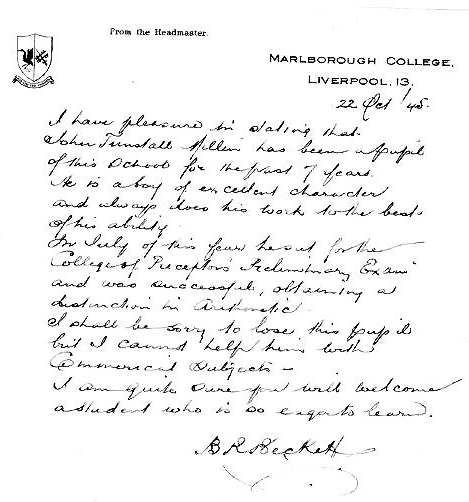 From the Headmaster.
MARLBOROUGH COLLEGE,
LIVERPOOL, 13.
22 Oct '45.
I have pleasure in stating that
John Tunstall has been a pupil
of this School for the past 7 years.
He is a boy of excellent character
and always does his work to the best
of his ability.
In July of this year he sat for the
College of Preceptors Preliminary Exam
and was successful, obtaining a
distinction in Arithmetic.
I shall be sorry to lose this pupil
but I cannot help him with
Commercial Subjects –
I am quite sure you will welcome
a student who is so eager to learn.
B R Beckett